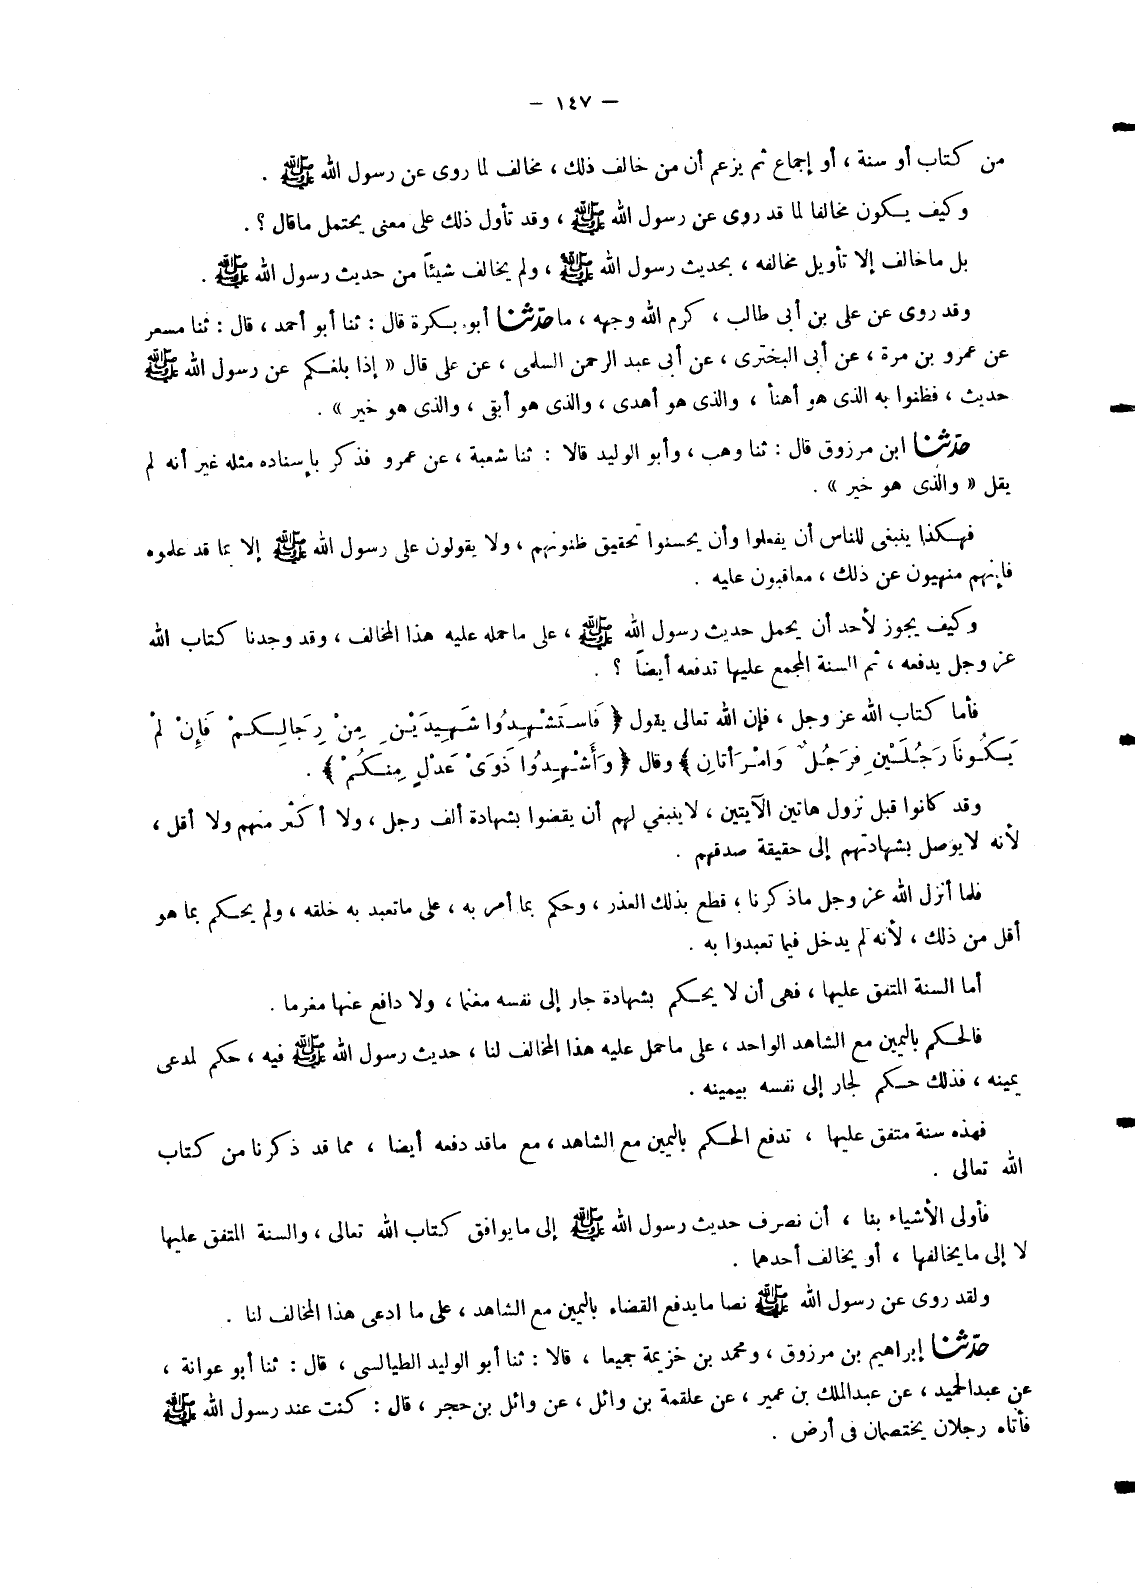 — ١٤٧ —
من كتاب أو سنة ، أو إجماع ثم يزعم أن من خالف ذلك ، مخالف لما روى عن رسول الله ﷺ .
وكيف يكون مخالفا لما قد روى عن رسول الله ﷺ ، وقد تأول ذلك على معنى يحتمل ماقال ؟ .
بل ماخالف إلا تأويل مخالفه ، بحديث رسول الله ﷺ ، ولم يخالف شيئاً من حديث رسول الله ﷺ .
وقد روى عن على بن أبى طالب ، كرم الله وجهه ، ما حدّثنا أبو بكرة قال : ثنا أبو أحمد ، قال : ثنا مسعر
عن عمرو بن مرة ، عن أبى البخترى ، عن أبى عبد الرحمن السلمى ، عن على قال « إذا بلغكم عن رسول الله ﷺ
حديث ، فظنوا به الذى هو أهنأ ، والذى هو أهدى ، والذى هو أبقى ، والذى هو خير » .
حدّثنا ابن مرزوق قال : ثنا وهب ، وأبو الوليد قالا : ثنا شعبة ، عن عمرو فذكر بإسناده مثله غير أنه لم
يقل « والذى هو خير » .
فهكذا ينبغى للناس أن يفعلوا وأن يحسنوا تحقيق ظنونهم ، ولا يقولون على رسول الله ﷺ إلا بما قد علموه
فإنهم منهيون عن ذلك ، معاقبون عليه .
وكيف يجوز لأحد أن يحمل حديث رسول الله ﷺ ، على ماحمله عليه هذا المخالف ، وقد وجدنا كتاب الله
عز وجل يدفعه ، ثم السنة المجمع عليها تدفعه أيضاً ؟ .
فأما كتاب الله عز وجل ، فإن الله تعالى يقول ﴿ فَاسْتَشْهِدُوا شَهِيدَيْنِ مِنْ رِجَالِكُمْ فَإِنْ لَمْ
يَكُونَا رَجُلَيْنِ فَرَجُلٌ وَامْرَأَتَانِ ﴾ وقال ﴿ وَأَشْهِدُوا ذَوَىْ عَدْلٍ مِنكُمْ ﴾ .
وقد كانوا قبل نزول هاتين الآيتين ، لاينبغي لهم أن يقضوا بشهادة ألف رجل ، ولا أكثر منهم ولا أقل ،
لأنه لايوصل بشهادتهم إلى حقيقة صدقهم .
فلما أنزل الله عز وجل ماذكرنا ؛ قطع بذلك العذر ، وحكم بما أمر به ، على ماتعبد به خلقه ، ولم يحكم بما هو
أقل من ذلك ، لأنه لم يدخل فيما تعبدوا به .
أما السنة المتفق عليها ، فهى أن لا يحكم بشهادة جار إلى نفسه مغنما ، ولا دافع عنها مغرما .
فالحكم باليمين مع الشاهد الواحد ، على ماحمل عليه هذا المخالف لنا ، حديث رسول الله ﷺ فيه ، حكم لمدعى
يمينه ، فذلك حكم لجار إلى نفسه بيمينه .
فهذه سنة متفق عليها ، تدفع الحكم باليمين مع الشاهد ، مع ماقد دفعه أيضا ، مما قد ذكرنا من كتاب
الله تعالى .
فأولى الأشياء بنا ، أن نصرف حديث رسول الله ﷺ إلى مايوافق كتاب الله تعالى ، والسنة المتفق عليها
لا إلى مايخالفها ، أو يخالف أحدهما .
ولقد روى عن رسول الله ﷺ نصا مايدفع القضاء باليمين مع الشاهد ، على ما ادعى هذا المخالف لنا .
حدّثنا إبراهيم بن مرزوق ، ومحمد بن خزيمة جميعا ، قالا : ثنا أبو الوليد الطيالسى ، قال : ثنا أبو عوانة ،
عن عبدالحميد ، عن عبدالملك بن عمير ، عن علقمة بن وائل ، عن وائل بن حجر ، قال : كنت عند رسول الله ﷺ
فأتاه رجلان يختصمان فى أرض .